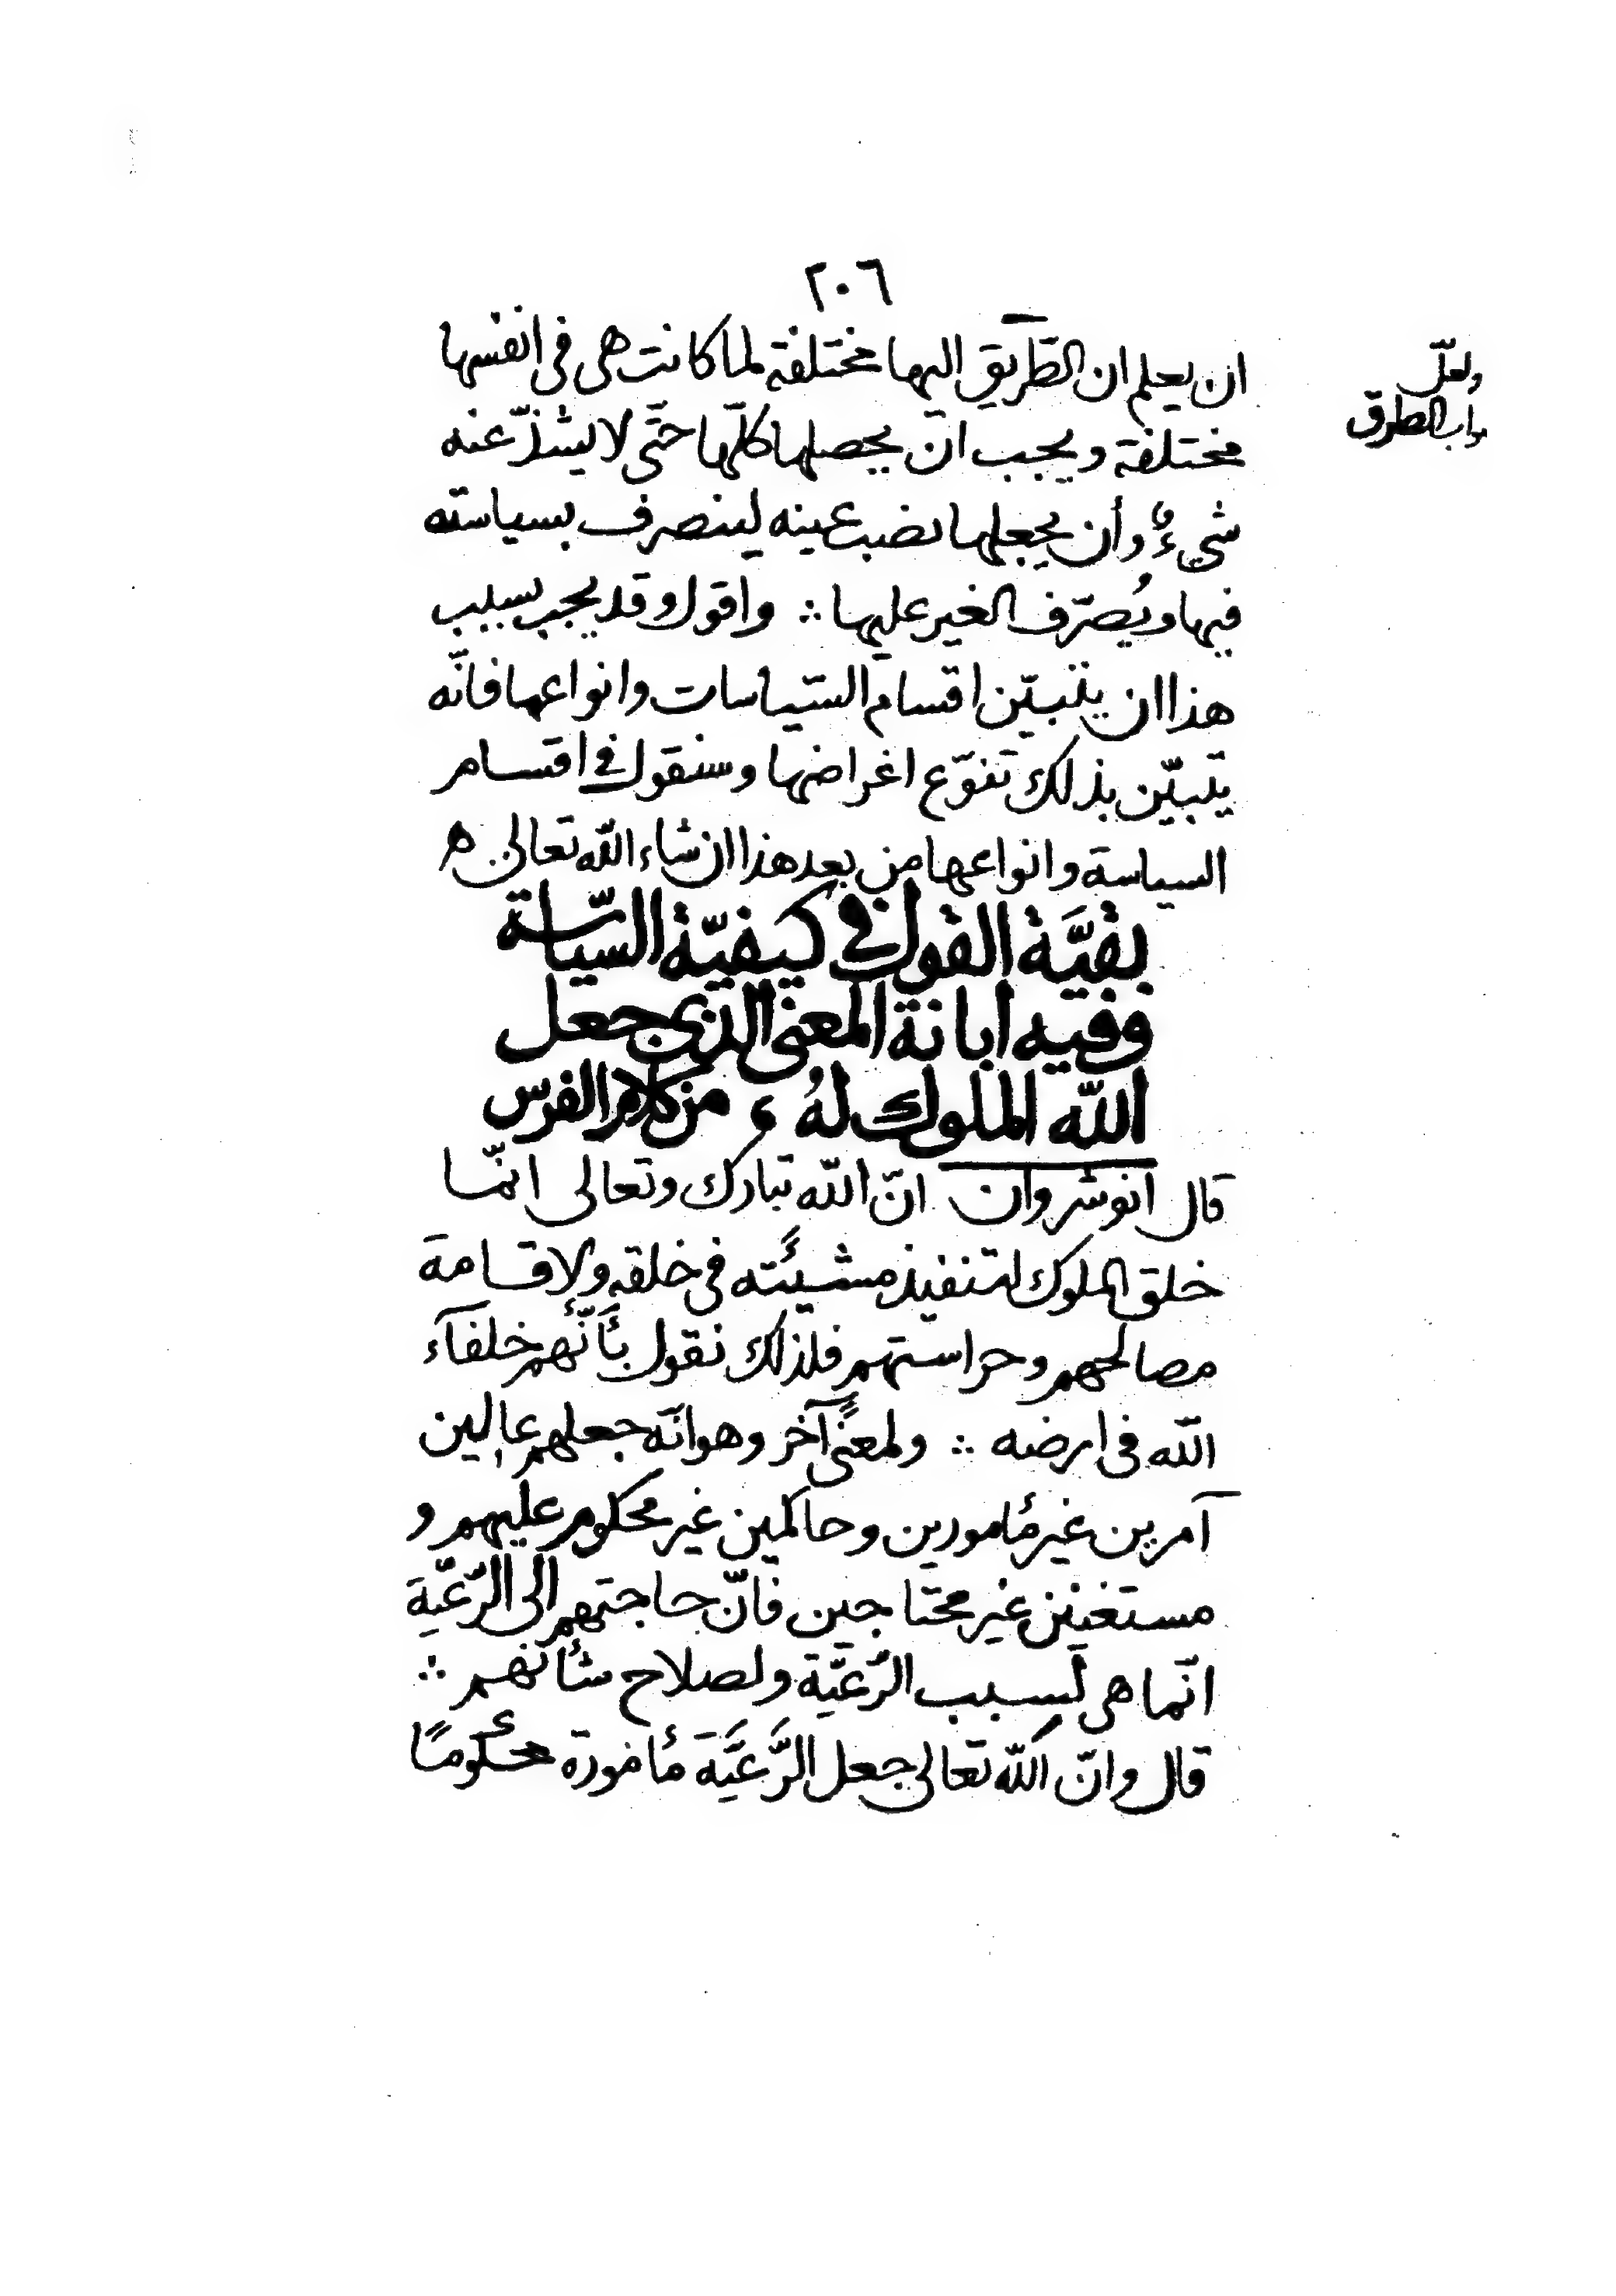 ٢٠٦
ان يعلم ان الطّريق اليها مختلفة لما كانت هى فى انفسها
ولعلّ
الطرق
مختلفة ويجب ان يحصلها كلّها حتّى لا يشذّ عنه
شىءٌ وأن يجعلها نصب عينه لينصرف بسياسته
فيها ويُصرّف الغير عليها ∴ واقول وقد يجب بسبب
هذا ان يتبيّن اقسام السّياسات وانواعها فانّه
يتبيّن بذلك تنوّع اغراضها وسنقول فى اقسام
السياسة وانواعها من بعد هذا ان شاء اللّه تعالى ه
بقيَّة القول فى كيفيّة السّياسة
وفيه ابانة المعنى الذى جعل
اللّه الملوك لهُ ، من كلام الفرس
قال انوشروان انّ اللّه تبارك وتعالى انّما
خلق الملوك لتنفيذ مشيئته فى خلقه ولاقامة
مصالحهم وحراستهم فلذلك نقول بأنّهم خلفآء
اللّه فى ارضه ∴ ولمعنًى آخر وهو انّه جعلهم عالين
آمرين غير مأمورين وحاكمين غير محكوم عليهم و
مستغنين غير محتاجين فانّ حاجتهم الى الرّعيّة
انّما هى لسبب الرّعيّة ولصلاح شأنهم ∴
قال وانّ اللّه تعالى جعل الرَّعيَّة مأمورة محكومًا